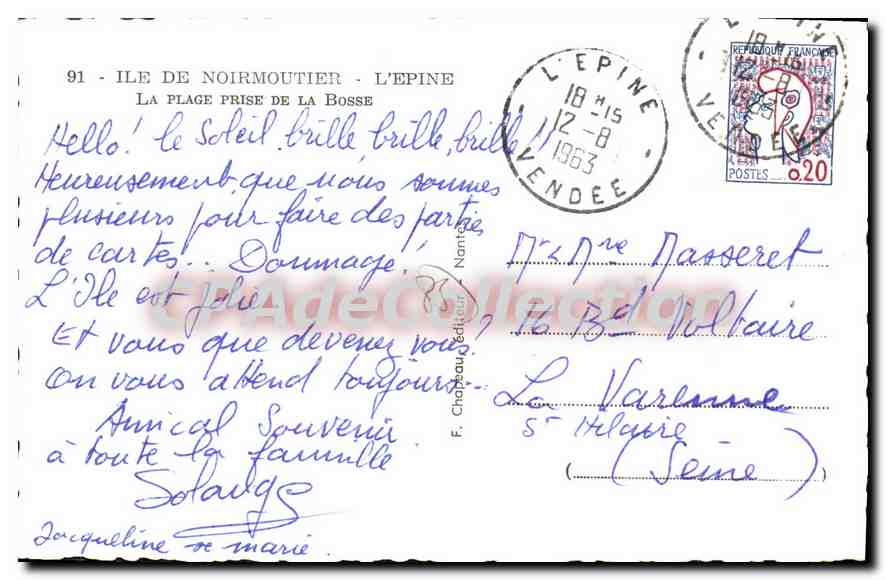 91 - ILE DE NOIRMOUTIER - L'EPINE
LA PLAGE PRISE DE LA BOSSE
Hello! le Soleil brille brille, brille!!
Heureusement que nous sommes
plusieurs pour faire des parties
de cartes.. Dommage!
L'Ile est jolie
Et vous que devenez vous?
On vous attend toujours...
Amical Souvenir
à toute la famille
Solange
Jacqueline se marie.
L'EPINE
18 H-15
12-8
1963
VENDEE
L'EPINE
18 H-15
12-8
1963
VENDEE
REPUBLIQUE FRANÇAISE
POSTES 0,20
Mr & Mme Masseret
76 Bd Voltaire
La Varenne
St Hilaire
(Seine)
85
F. Chapeau, éditeur - Nantes
CPADeCollection